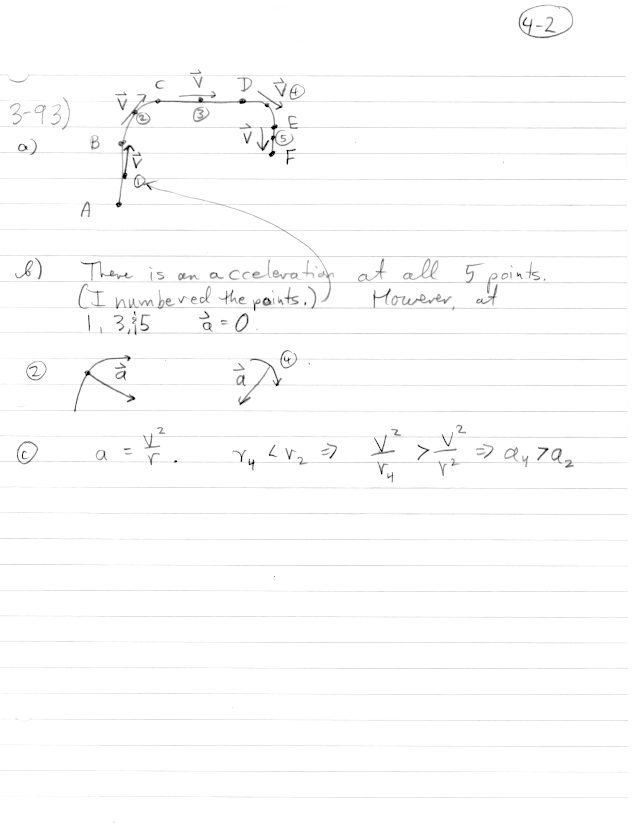 4-2
3-93)
a)
A
B
C
D
E
F
v⃗ ①
v⃗ ②
v⃗ ③
v⃗ ④
v⃗ ⑤
b) There is an acceleration at all 5 points.
(I numbered the points.) However, at
1, 3, & 5 a⃗ = 0.
② a⃗ a⃗ ④.
ⓒ a = v²/r. r₄ < r₂ ⇒ v²/r₄ > v²/r² ⇒ a₄ > a₂